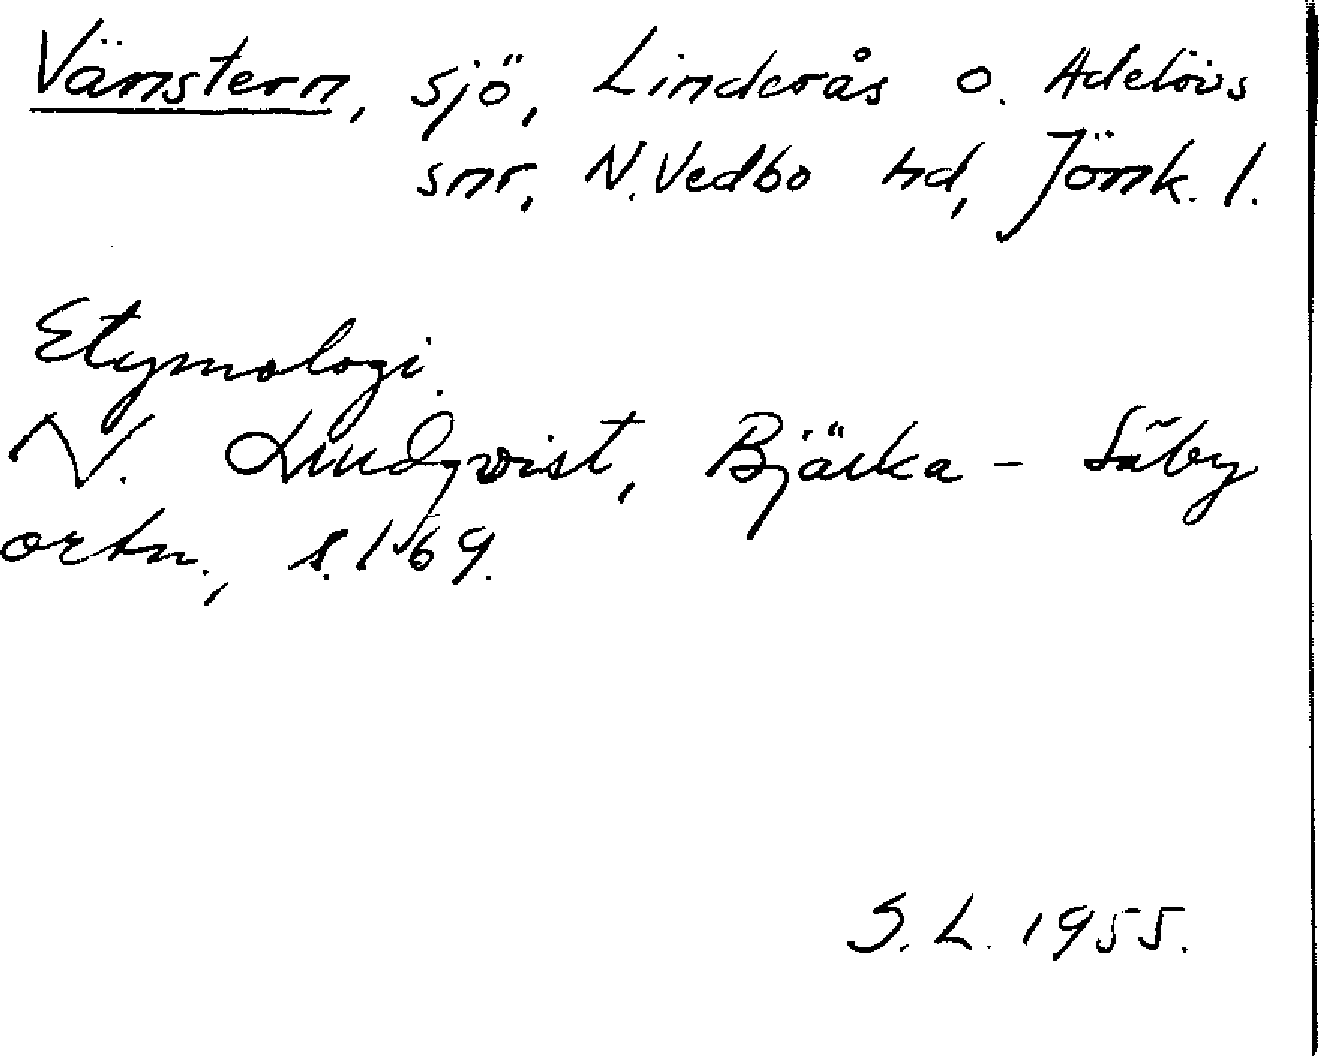 Vänstern, sjö, Linderås o. Adelövs
snr, N. Vedbo hd, Jönk. l.
Etymologi.
N. Lindqvist, Bjärka - Säby
ortn., s. 169.
S. L. 1955.